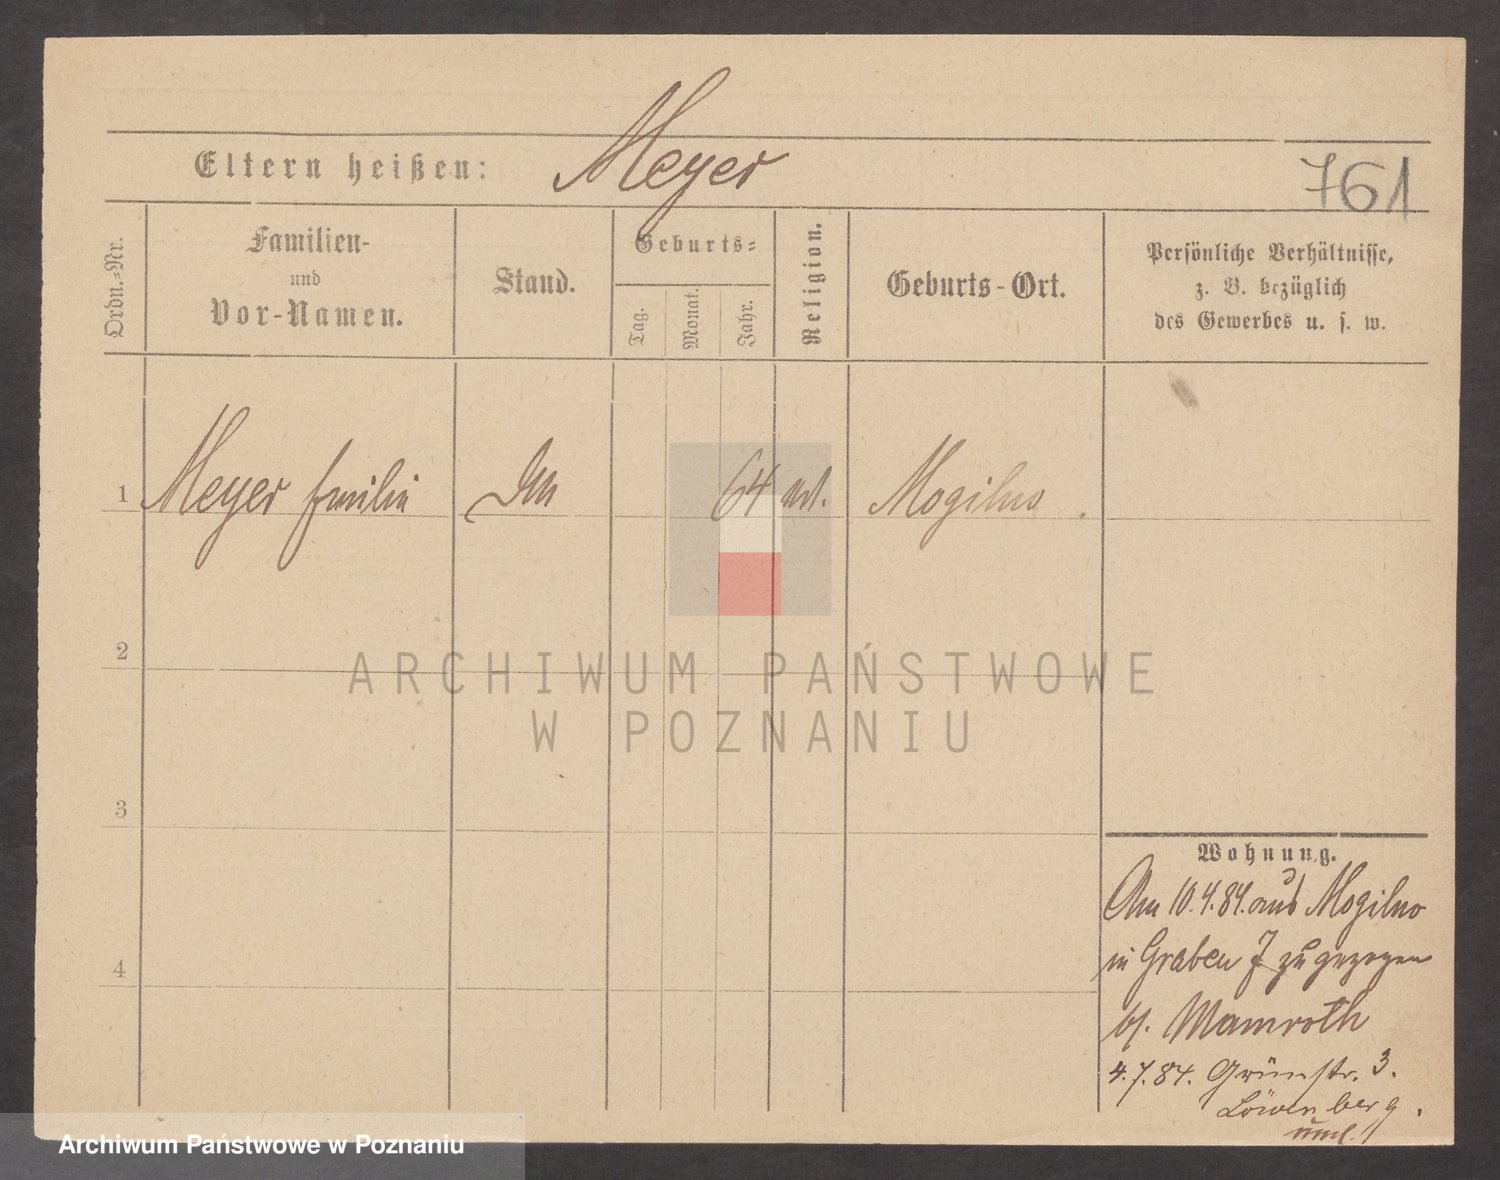 Eltern heißen: Meyer
761
Ordn.-Nr.
Familien-
und
Vor-Namen.
Stand.
Geburts-
Tag.
Monat.
Jahr.
Religion.
Geburts-Ort.
Persönliche Verhältnisse,
z. B. bezüglich
des Gewerbes u. s. w.
1 Meyer Emilie 64 Mogilno
2
ARCHIWUM PAŃSTWOWE
W POZNANIU
3
4
Wohnung.
Am 10.4.84. aus Mogilno
in Graben 7 zugezogen
b/. Mamroth
4.7.84. Grünstr. 3.
Löwenberg.
Archiwum Państwowe w Poznaniu